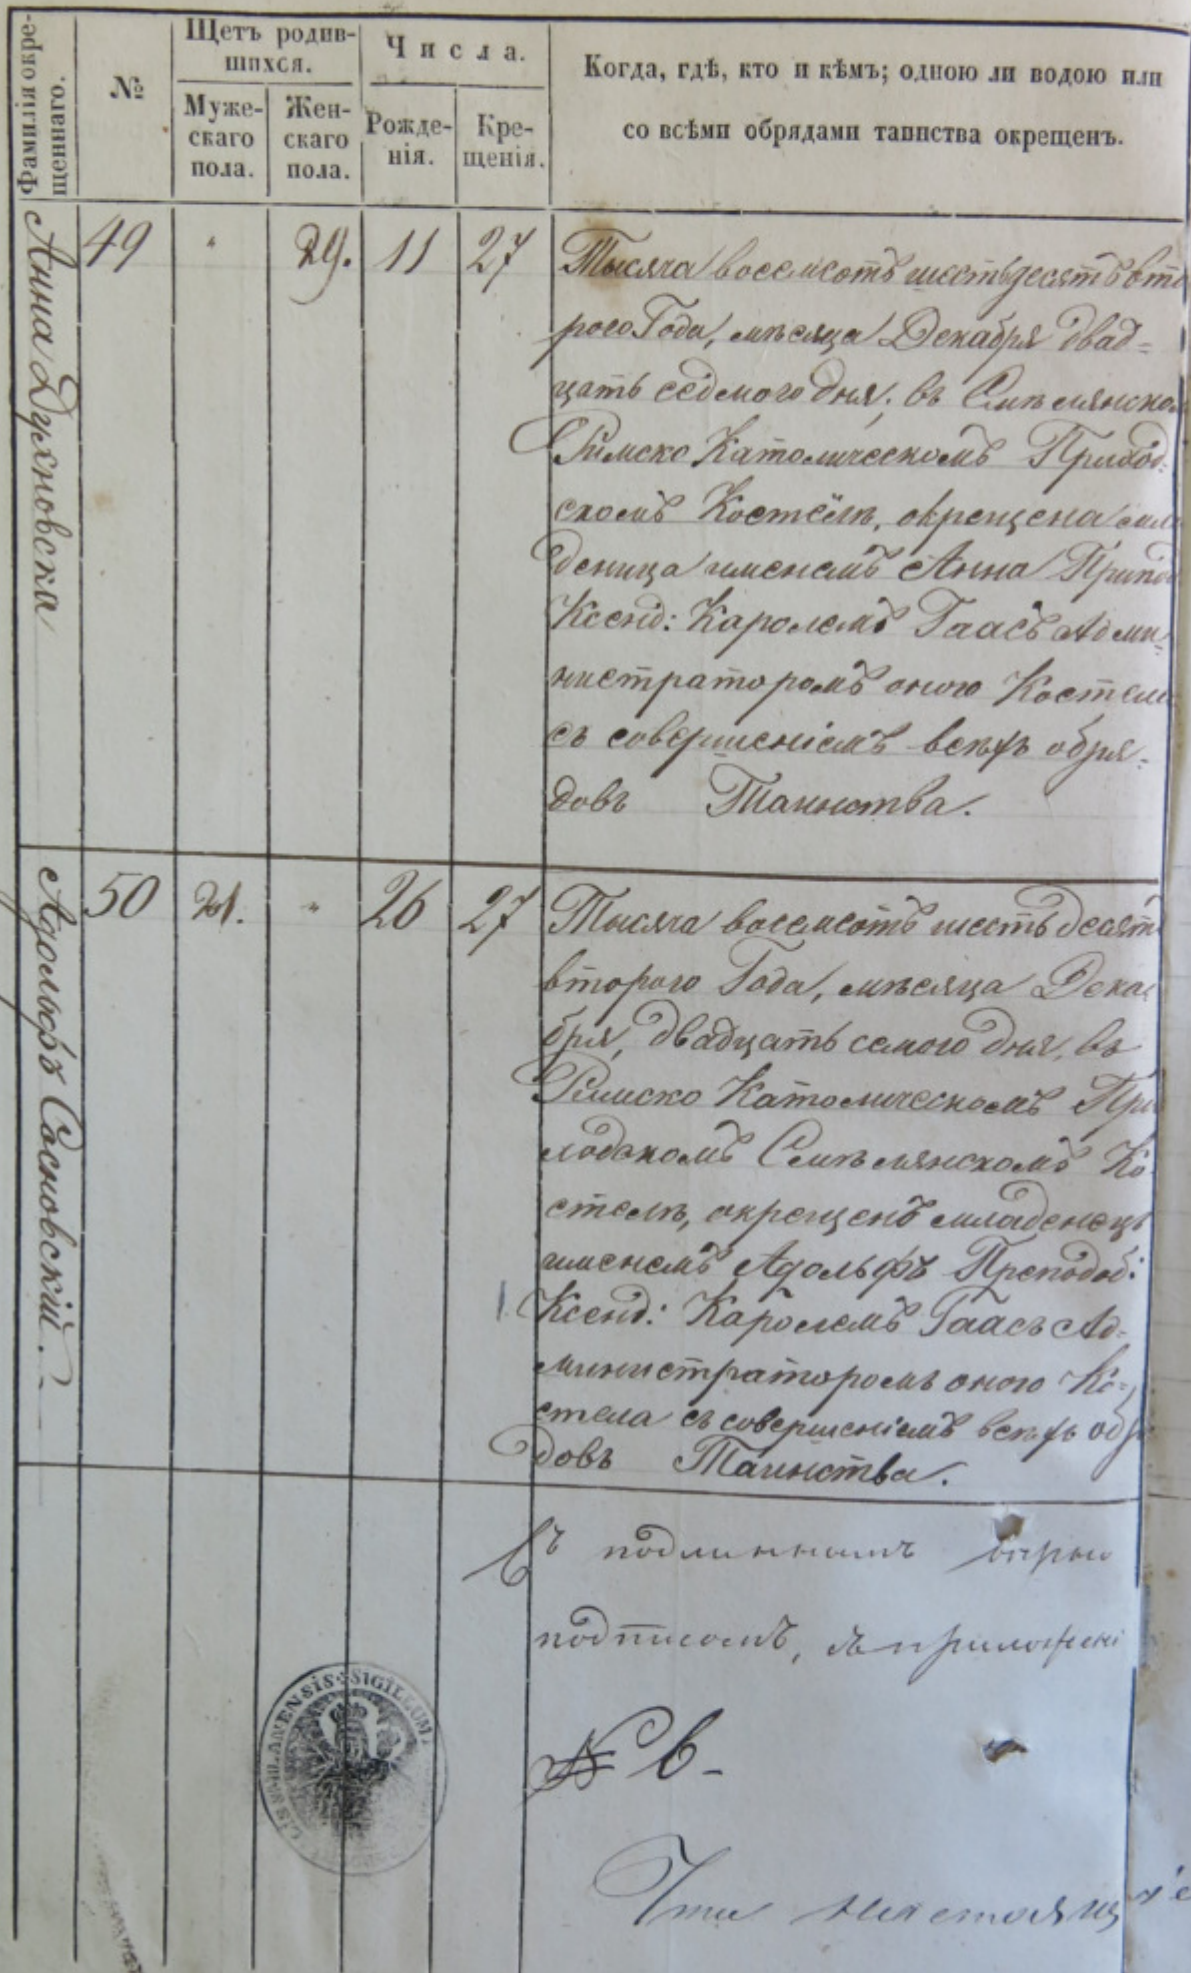 Фамилія окре-
щеннаго.
№
Щетъ родив-
шихся.
Муже-
скаго
пола.
Жен-
скаго
пола.
Числа.
Рожде-
нія.
Кре-
щенія.
Когда, гдѣ, кто и кѣмъ; одною ли водою или
со всѣми обрядами таинства окрещенъ.
Анна Духновска
49
"
29.
11
27
Тысяча восемсотъ шестьдесятъ вто
рого Года, мѣсяца Декабря двад=
цать седмого дня; въ Смѣлянско
Римско Католическомъ Приход=
скомъ Костёлѣ, окрещена мла
деница именемъ Анна Препод
Ксенд: Каролемъ Гаасъ Адми=
нистраторомъ оного Костела
съ совершеніемъ всѣхъ обря=
довъ Таинства.
Адольфъ Сосновскій.
50
21.
"
26
27
Тысяча восемсотъ шестьдесятъ
второго Года, мѣсяца Дека
бря, двадцать семого дня, въ
Римско Католическомъ При
ходскомъ Смѣлянскомъ Ко
стелѣ, окрещенъ младенецъ
именемъ Адольфъ Преподоб:
Ксенд: Каролемъ Гаасъ Ад=
министраторомъ оного Ко=
стела съ совершеніемъ всѣхъ обря
довъ Таинства.
Съ подлиннымъ вѣрно
подписомъ, съ приложені
Что настоящ
SIGILLUM